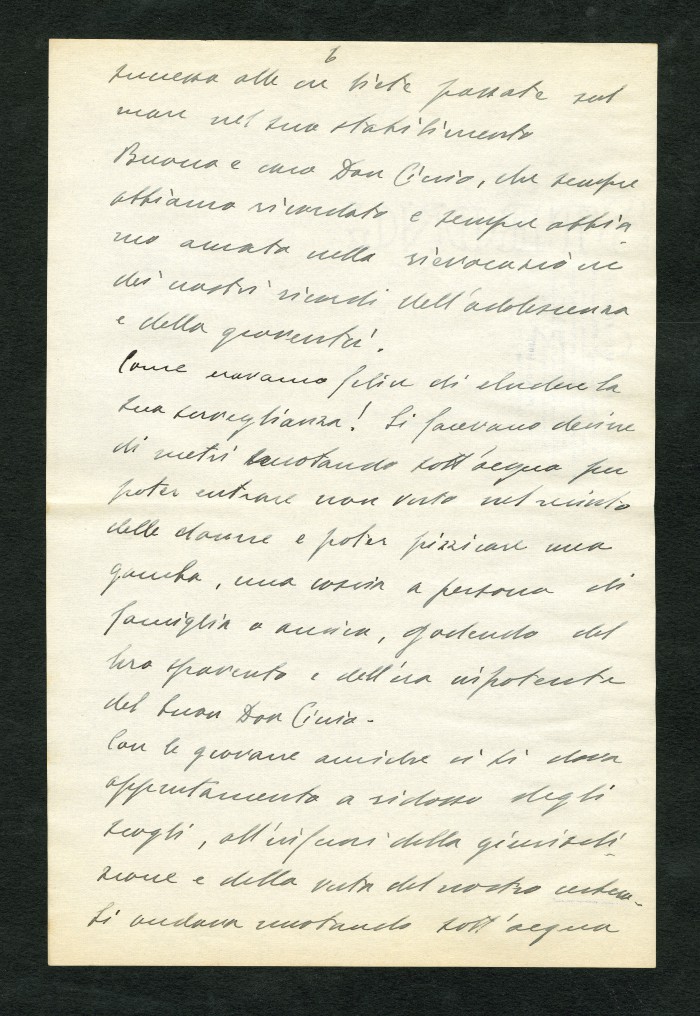 6
successo alle ore liete passate sul
mare nel suo stabilimento
Buono e caro Don Ciccio, che sempre
abbiamo ricordato e sempre abbia
mo amato nella rievocazione
dei nostri ricordi dell'adolescenza
e della gioventù.
Come eravamo felici di eludere la
sua sorveglianza! Si facevano decine
di metri nuotando sott'acqua per
poter entrare non visto nel recinto
delle donne e poter pizzicare una
gamba, una coscia a persona di
famiglia o amica, godendo del
loro spavento e dell'ira impotente
del buon Don Ciccio.
Con le giovane amiche ci si dava
appuntamento a ridosso degli
scogli, all'infuori della giurisdi
zione e della vista del nostro
Si andava nuotando sott'acqua